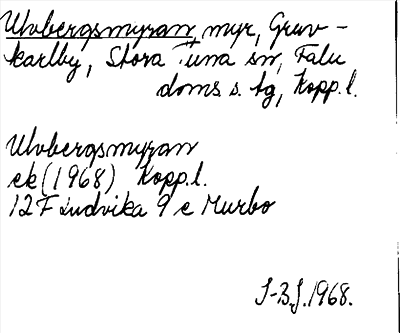 Ulvbergsmyran, myr, Gruv-
karlby, Stora Tuna sn, Falu
doms. s. tg, Kopp. l.
Ulvbergsmyran
ek (1968) Kopp. l.
12 F Ludvika 9 c Murbo
I-B.J. 1968.